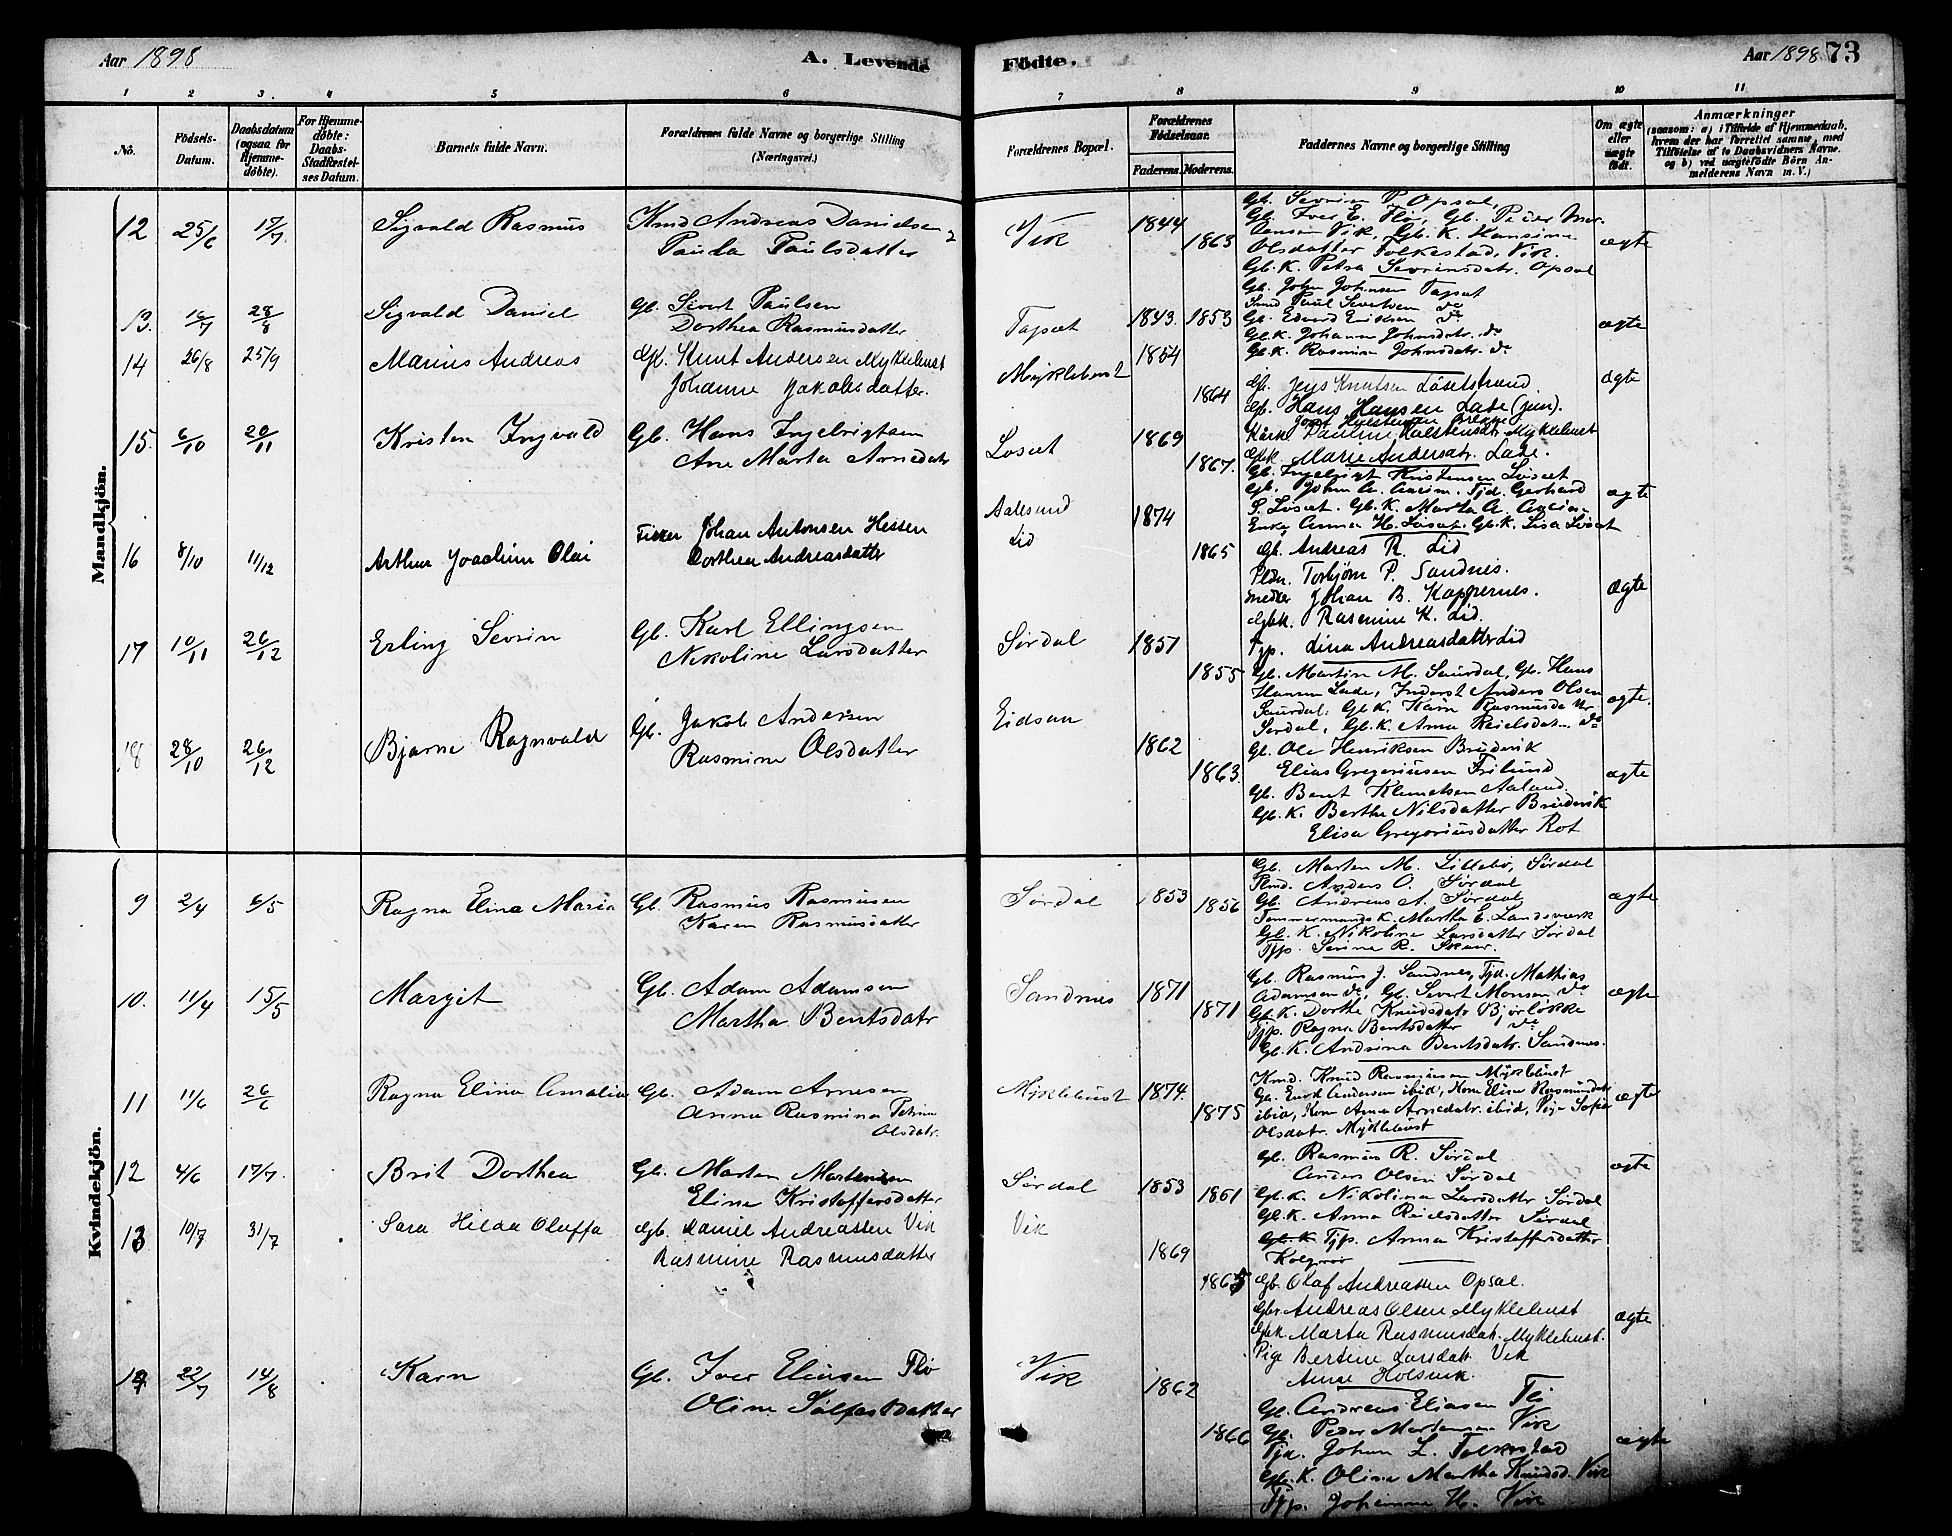 Aar 1898
A. Levende
Födte.
Aar 1898
73
1 2 3. 4 5 6 7 8 9 10 11
No.
Födsels-Datum.
Daabsdatum (ogsaa for Hjemmedöbte).
For Hjemmedöbte: Daabs-Stadfæstelses Datum.
Barnets fulde Navn.
Forældrenes fulde Navne og borgerlige Stilling (Næringsvei.)
Forældrenes Bopæl.
Forældrenes Födselsaar.
Faderens. Moderens.
Faddernes Navne og borgerlige Stilling
Om ægte eller uægte födt.
Anmærkninger
(saasom: a) i Tilfælde af Hjemmedaab, hvem der har forrettet samme, med Tilföielse af to Daabsvidners Navne, og b) ved uægtefödte Börn Anmelderens Navn m. V.)
Mandkjön.
12 25/6 17/7. Sigvald Rasmus
Kmd Andreas Danielsen
Paula Paulsdatter
Vik 1844 1863
Gb. Severin P. Opsal,
Gb. Iver E. Flø, Gb. Peder Mor-
tensen Vik, Gb. K. Hansine
Olsdatter Folkestad, Vik.
Gb. K. Petra Sevrinsdatr. Opsal
ægte
13. 16/7 28/8 Sigvald Daniel
Gb. Sivert Paulsen
Dorthea Rasmusdatter
Tapset 1843. 1853
Gb. John Johnsen Tapset
Smd Paul Severtsen do
Gb. Edvard Eriksen do
Gb. K. Johanne Johnsdatr. do
Gb. K. Rasmine Johnsdatr. do
ægte
14 26/8 25/9 Marius Andreas
Gb. Knut Andersen Myklebust
Johanne Jakobsdatter.
Myklebust 1854 1864
Gb. Jens Knutsen Løsetstrand
Gb. Hans Hansen Lade (jun).
Pauline Halstensdtr Myklebust
Gbk. Marie Andersdtr. Lade.
ægte
15. 6/10 20/11 Kristen Ingvald
Gb. Hans Ingebrigtsen
Ane Marta Arnedatr
Løset 1869 1867.
Gb. Ingebrigt Kristensen Løset
Gb. John A. Aarim. Tjd. Gerhard
S. Løset. Gb. K. Marta A. Aarim
Enke Anna H. Løset. Gb. K. Lisa Løset
ægte
16 8/10 11/12 Arthur Joachim Olai
Fisker Johan Antonsen Hessen
Dorthea Andreasdatter
Aalesund
Lid 1874 1865
Gb. Andreas R. Lid
Torbjørn P. Sandnes.
Johan B. Koppernes.
Gbk. Rasmine K. Lid.
Tjp. Lina Andreasdatter Lid
ægte
17 10/11 26/12 Erling Sevrin
Gb. Karl Ellingsen
Nikoline Larsdatter
Sørdal 1851 1855
Gb. Martin M. Saurdal, Gb. Hans
Hansen Lade, Inderst Anders Olsen
Saurdal. Gb. K. Karn Rasmusdatter
Sørdal, Gb. K. Anna Reielsdatr. do
ægte.
18 28/10 26/12 Bjarne Ragnvald
Gb. Jakob Andersen
Rasmine Olsdatter
Eidsaa 1862 1863.
Gb. Ole Henriksen Brudevik
Elias Gregoriusen Frilund
Gb. Bent Klemetsen Aaland
Gb. K. Berthe Nilsdatter Brudevik
Elisa Gregoriusdatter Rot
ægte
Kvindekjön.
9 2/4 6/5 Ragna Elina Maria
Gb. Rasmus Rasmusen
Karen Rasmusdatter
Sørdal 1853 1856
Gb. Morten M. Lillebø, Sørdal
Anders O. Sørdal
Gb. Andreas A. Sørdal
Tømmermands K. Martha E. Landsværk
Gb. K. Nikoline Larsdatter Sørdal
Tjp. Serine R. Skaar.
ægte
10. 11/4 15/5 Margit
Gb. Adam Adamsen
Martha Bentsdatr
Sandnes 1871 1871
Gb. Rasmus J. Sandnes, Tjd. Mathias
Adamsen do, Gb. Severt Monsen do
Gb. K. Dorthe Knudsdatr Bjørløkke
Tjp. Ragna Bentsdatter do
Gb. K. Andrina Bentsdatr. Sandnes.
ægte
11 11/6 26/6 Ragna Elina Amalia
Gb. Adam Arnesen
Anna Rasmina Petrine
Olsdatr.
Myklebust 1874. 1875
Kmd. Knud Rasmusen Myklebust
Gb. Enok Andersen ibid, Kone Eline Rasmusdatr
ibid, Kone Anna Arnedatr. ibid, Pige Sofie
Olsdatr. Myklebust
ægte
12 4/6 17/7. Brit Dorthea
Gb. Morten Mortensen
Eline Kristoffersdatter
Sørdal 1853 1861
Gb. Rasmus R. Sørdal
Anders Olsen Sørdal
Gb. K. Nikoline Larsdatter Sørdal
Gb. K. Anna Reielsdatter Sørdal
Gb. K Tjp. Anna Kristoffersdatter
ægte
13 10/7 31/7 Sara Hilda Oluffa
Gb. Daniel Andreassen Vik
Rasmine Rasmusdatter
Vik 1869 1865
Gb. Olaf Andreassen Opsal.
Gbr Andreas Olsen Myklebust
Gbk. Marta Rasmusdatr. Myklebust.
Pige Bertine Larsdatt. Vik
Anne Holsvik.
ægte
14 22/7 14/8 Karn
Gb. Iver Eliasen Flø
Oline Sølfestdatter
Vik 1862 1866
Gb. Andreas Eliasen Flø
Gb. Peder Mortensen Vik
Tjd. Johan L. Folkestad
Gb. K. Oline Martha Knudsd. Vik
Tjp. Johanne H. Vik
ægte